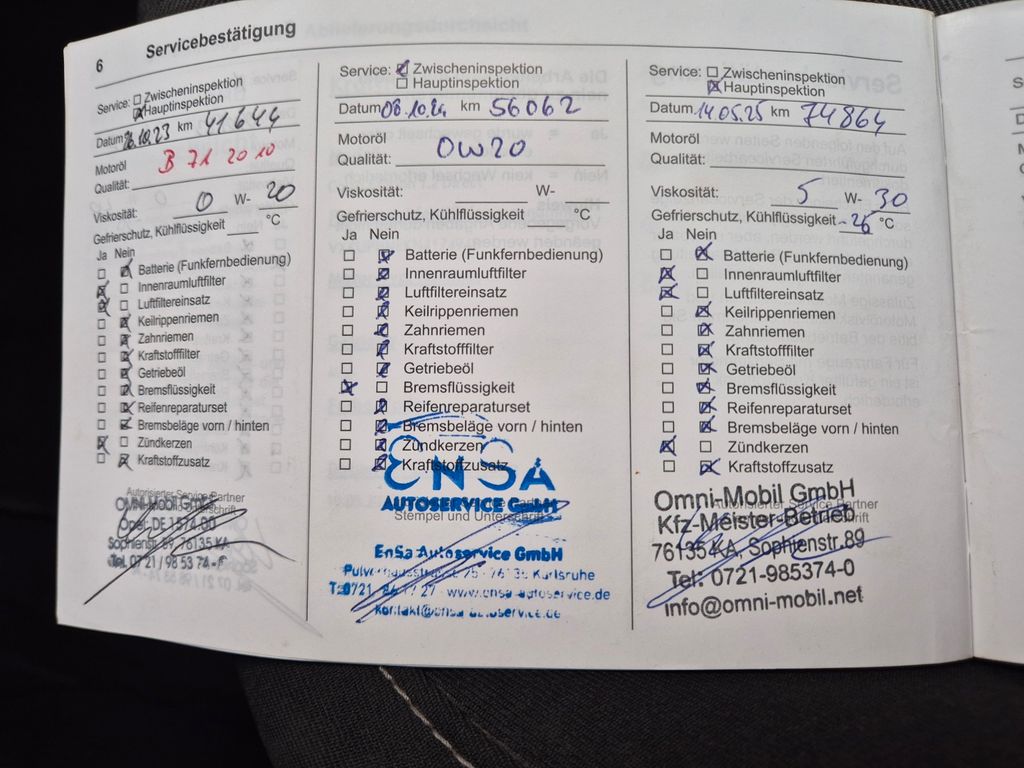 6 Servicebestätigung
Service: Zwischeninspektion
Hauptinspektion
Datum 10.23 km 41644
Motoröl
Qualität: B 71 2010
Viskosität: 0 W- 20
Gefrierschutz, Kühlflüssigkeit °C
Ja Nein
Batterie (Funkfernbedienung)
Innenraumluftfilter
Luftfiltereinsatz
Keilrippenriemen
Zahnriemen
Kraftstofffilter
Getriebeöl
Bremsflüssigkeit
Reifenreparaturset
Bremsbeläge vorn / hinten
Zündkerzen
Kraftstoffzusatz
Autorisierter Service Partner
Omni-Mobil GmbH
Opel DE 1574.00
Sophienstr. 89, 76135 KA
Tel. 07 21 / 98 53 74 - 0
Service: Zwischeninspektion
Hauptinspektion
Datum 08.10.24 km 56062
Motoröl
Qualität: 0W20
Viskosität: W-
Gefrierschutz, Kühlflüssigkeit °C
Ja Nein
Batterie (Funkfernbedienung)
Innenraumluftfilter
Luftfiltereinsatz
Keilrippenriemen
Zahnriemen
Kraftstofffilter
Getriebeöl
Bremsflüssigkeit
Reifenreparaturset
Bremsbeläge vorn / hinten
Zündkerzen
Kraftstoffzusatz
ENSA
AUTOSERVICE GmbH
Stempel und Unterschrift
EnSa Autoservice GmbH
Karlsruhe
www.ensa-autoservice.de
kontakt@ensa-autoservice.de
Service: Zwischeninspektion
Hauptinspektion
Datum 14.05.25 km 74864
Motoröl
Qualität:
Viskosität: 5 W- 30
Gefrierschutz, Kühlflüssigkeit -26 °C
Ja Nein
Batterie (Funkfernbedienung)
Innenraumluftfilter
Luftfiltereinsatz
Keilrippenriemen
Zahnriemen
Kraftstofffilter
Getriebeöl
Bremsflüssigkeit
Reifenreparaturset
Bremsbeläge vorn / hinten
Zündkerzen
Kraftstoffzusatz
Omni-Mobil GmbH
Kfz-Meister-Betrieb
76135 KA, Sophienstr. 89
Tel: 0721-985374-0
info@omni-mobil.net